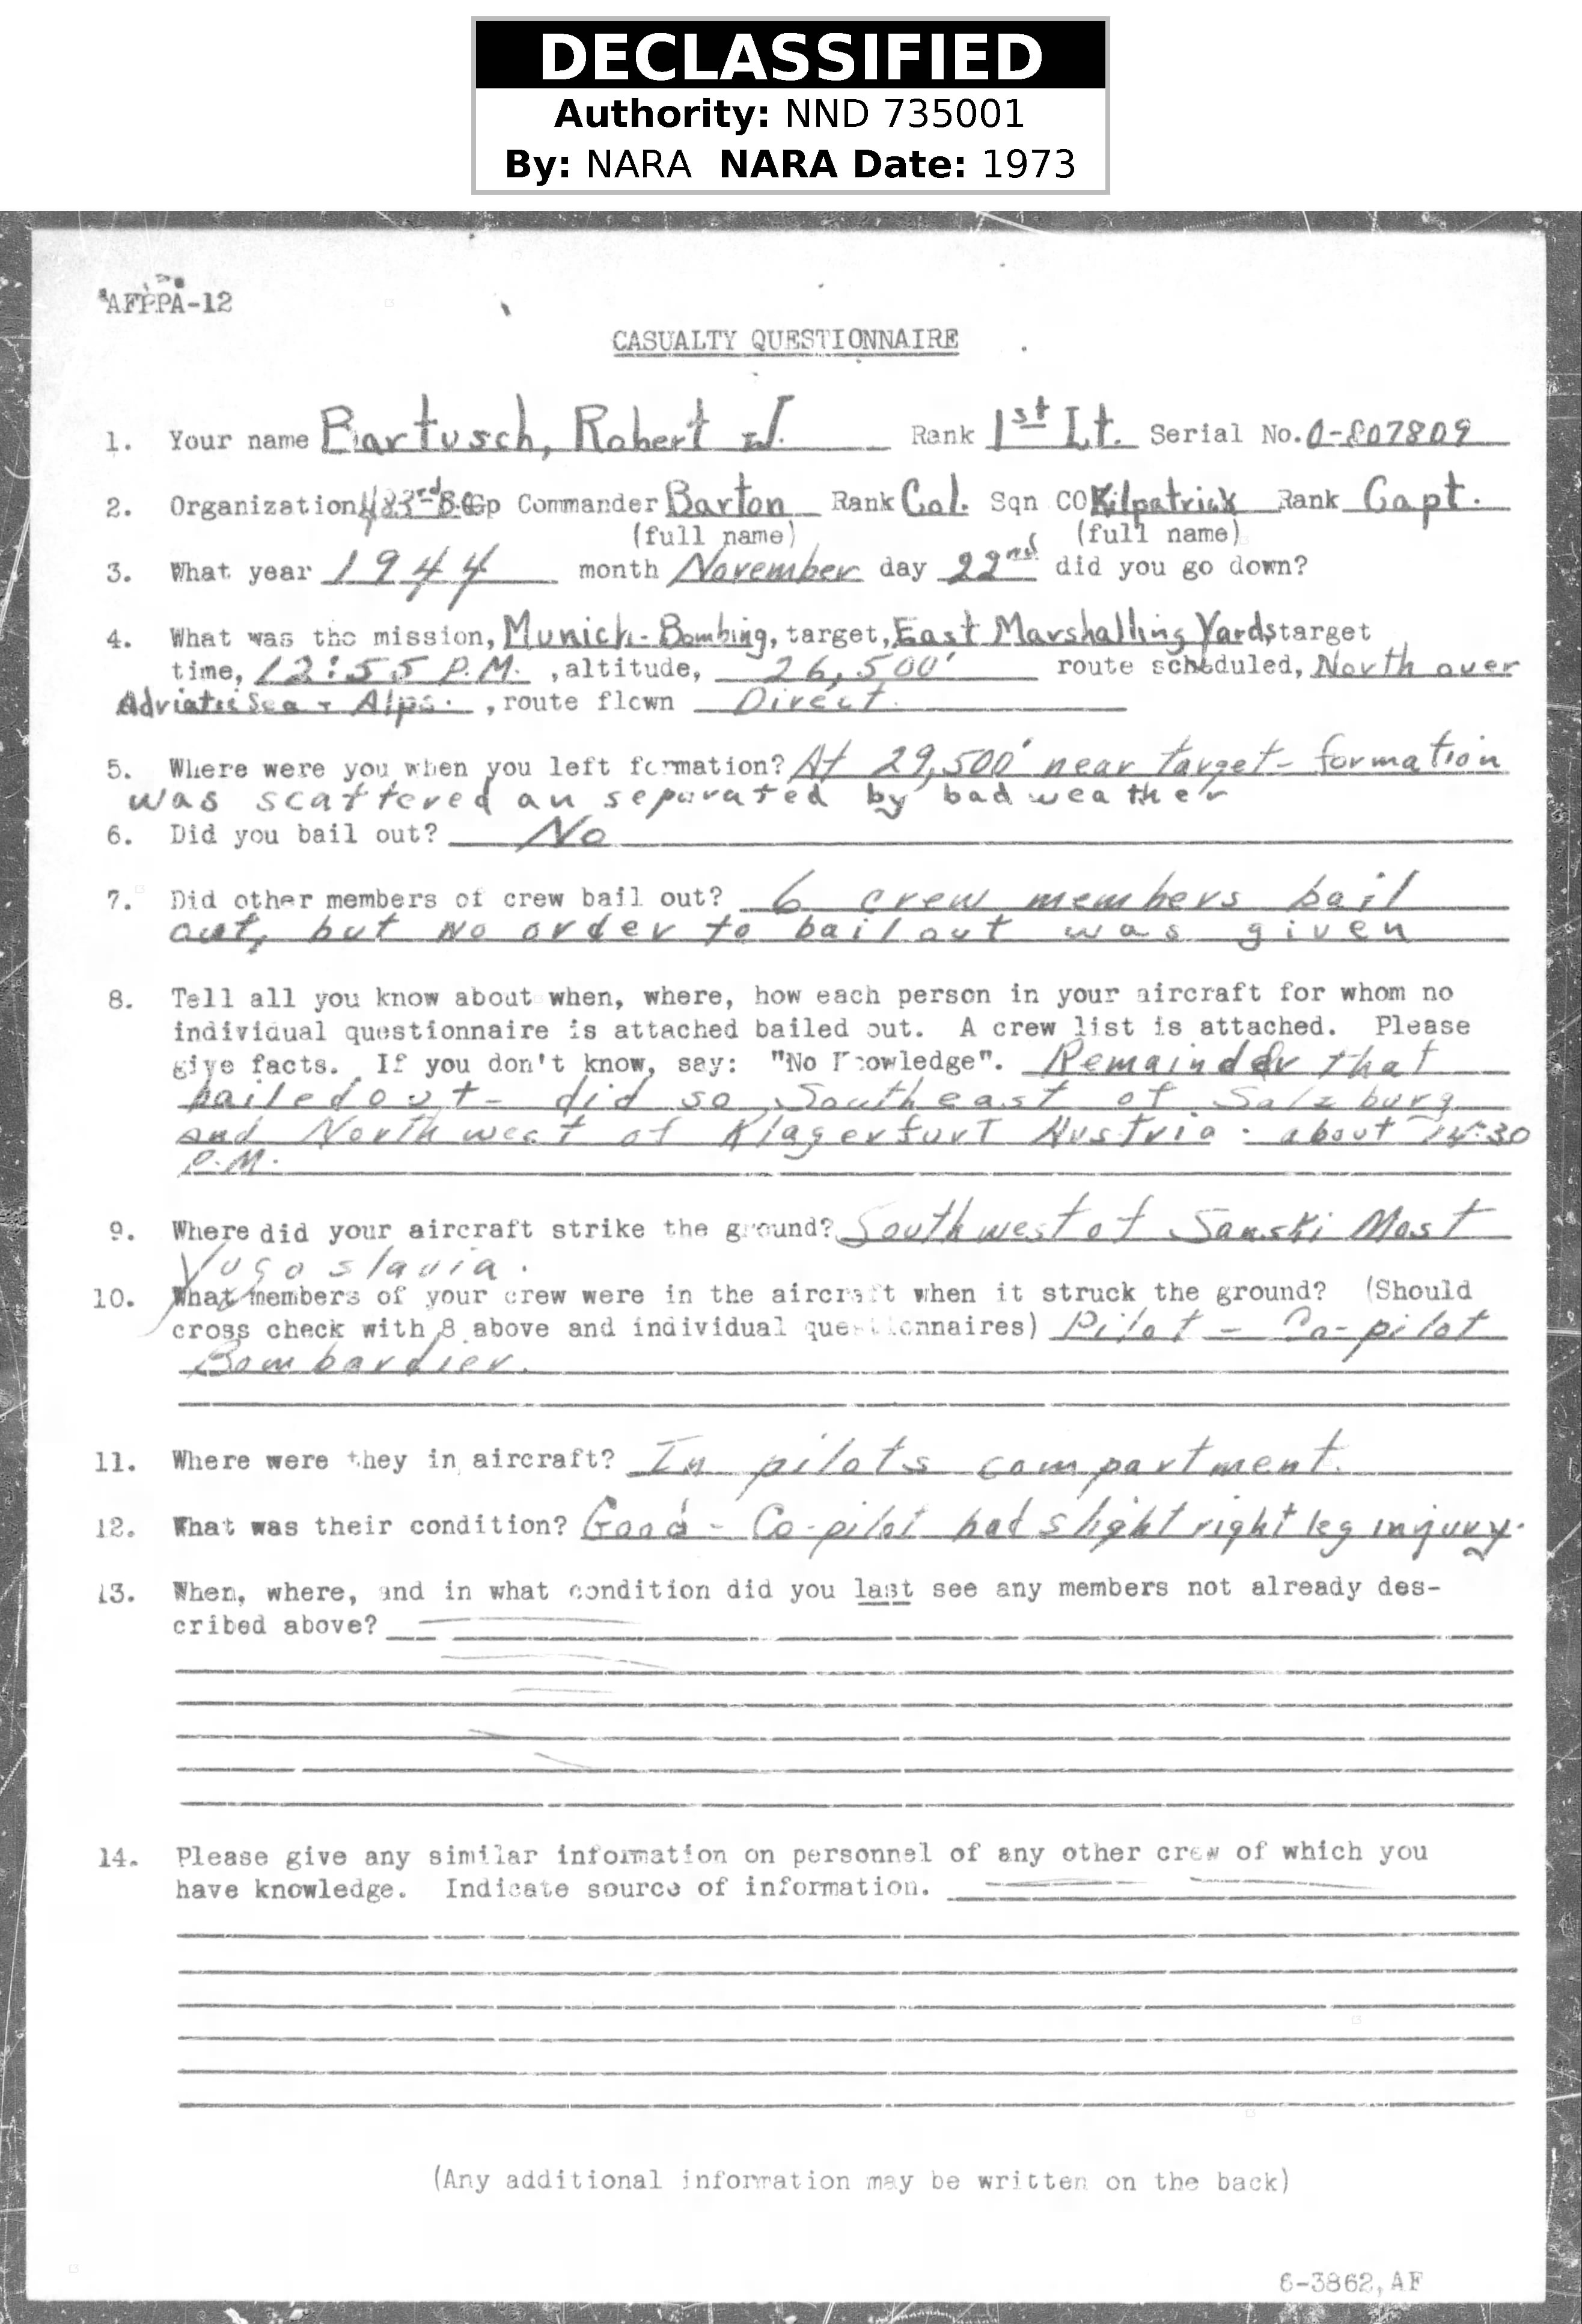 DECLASSIFIED
Authority: NND 735001
By: NARA NARA Date: 1973
AFPPA-12
CASUALTY QUESTIONNAIRE
1. Your name Bartusch, Robert J. Rank 1st Lt. Serial No. O-807809
2. Organization 483rd B.G. Gp Commander Barton Rank Col. Sqn CO Kilpatrick Rank Capt.
(full name) (full name)
3. What year 1944 month November day 22nd did you go down?
4. What was the mission, Munich-Bombing, target, East Marshalling Yards target
time, 12:55 P.M. , altitude, 26,500' route scheduled, North over
Adriatic Sea + Alps. , route flown Direct.
5. Where were you when you left formation? At 29,500' near target - formation
was scattered an separated by bad weather
6. Did you bail out? No
7. Did other members of crew bail out? 6 crew members bail
out, but no order to bail out was given
8. Tell all you know about when, where, how each person in your aircraft for whom no
individual questionnaire is attached bailed out. A crew list is attached. Please
give facts. If you don't know, say: "No Knowledge". Remainder that
bailed out - did so Southeast of Salzburg
and Northwest of Klagerfurt Austria. about 14:30
P.M.
9. Where did your aircraft strike the ground? Southwest of Sanski Most
Yugoslavia.
10. What members of your crew were in the aircraft when it struck the ground? (Should
cross check with 8 above and individual questionnaires) Pilot - Co-pilot
Bombardier.
11. Where were they in aircraft? In pilots compartment.
12. What was their condition? Good - Co-pilot had slight right leg injury.
13. When, where, and in what condition did you last see any members not already des-
cribed above?
14. Please give any similar information on personnel of any other crew of which you
have knowledge. Indicate source of information.
(Any additional information may be written on the back)
6-3862, AF